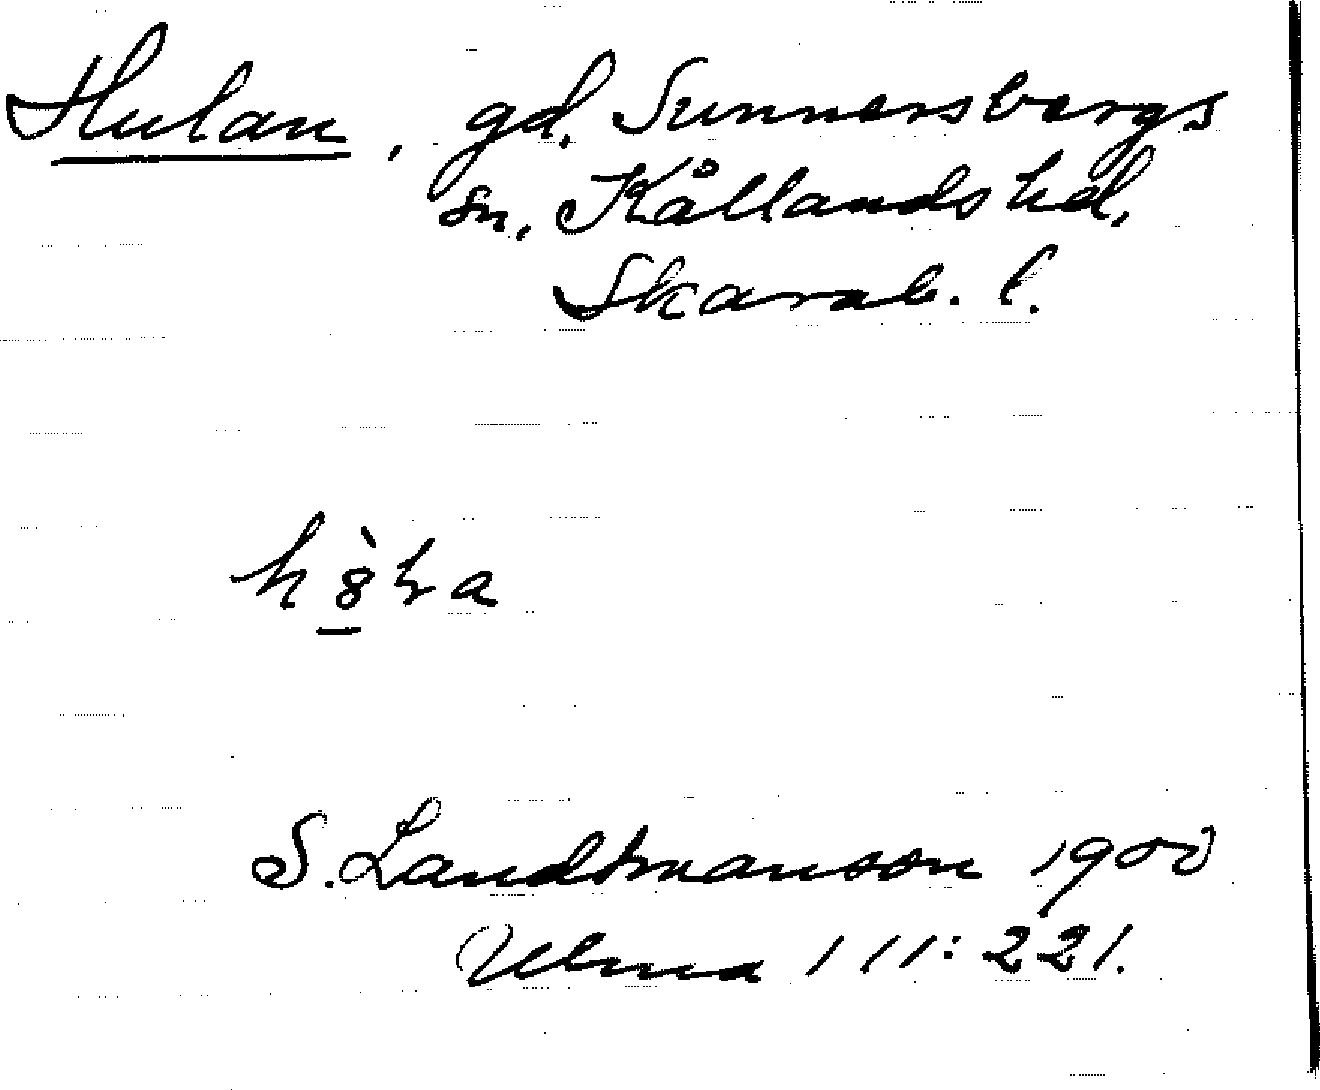 Hulan, gd. Sunnersbergs
sn. Kållands hd.
Skarab. l.
S. Landtmanson 1900
Ulma 111:221.